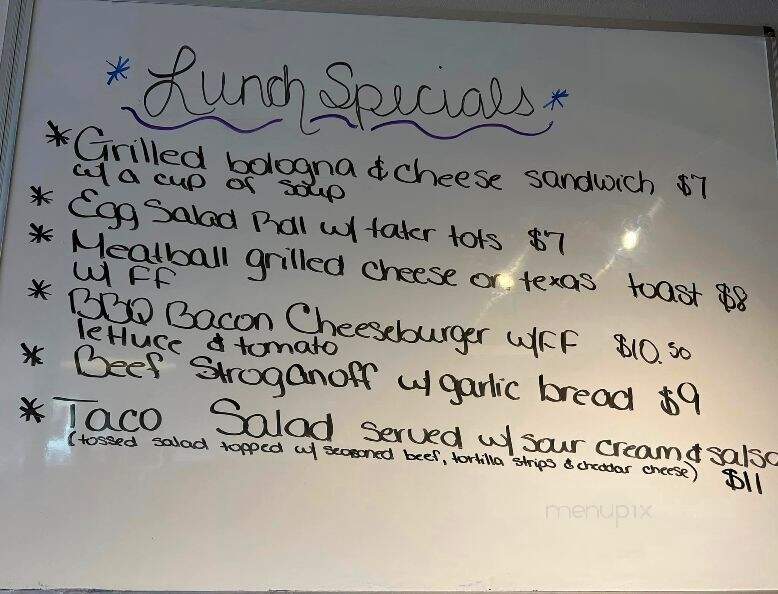 * Lunch Specials *
* Grilled bologna & cheese sandwich $7
w/ a cup of soup
* Egg Salad Roll w/ tater tots $7
* Meatball grilled cheese on texas toast $8
w/ FF
* BBQ Bacon Cheeseburger w/FF $10.50
lettuce & tomato
* Beef Stroganoff w/ garlic bread $9
* Taco Salad served w/ sour cream & salsa
(tossed salad topped w/ seasoned beef, tortilla strips & cheddar cheese) $11
menupix